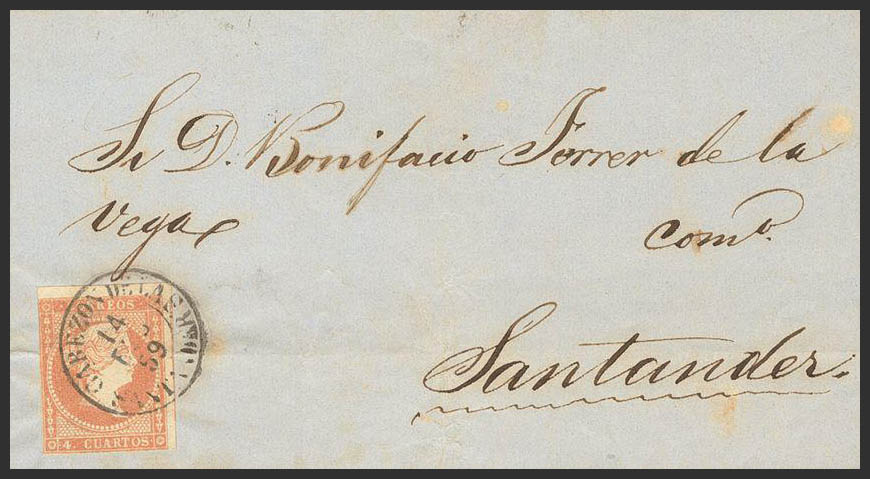 Sr D. Bonifacio Ferrer de la
Vega
comº.
Santander.
CORREOS
CABEZON DE LA SAL
14
59
SANTANDER
4. CUARTOS